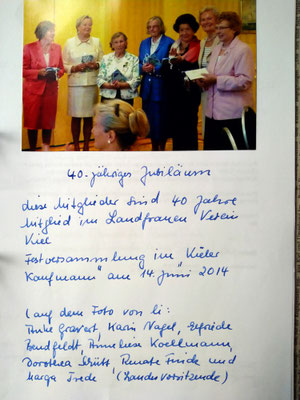 40. jähriges Jubiläum
diese Mitglieder sind 40 Jahre
Mitglied im Landfrauen Verein
Kiel
Festversammlung im "Kieler
Kaufmann" am 14. Juni 2014
(auf dem Foto von li:
Anke Gravert, Karin Nagel, Elfriede
Bendfeldt, Anneliese Koellmann,
Dorothea Schütt, Renate Frick und
Marga Trede (Landesvorsitzende)